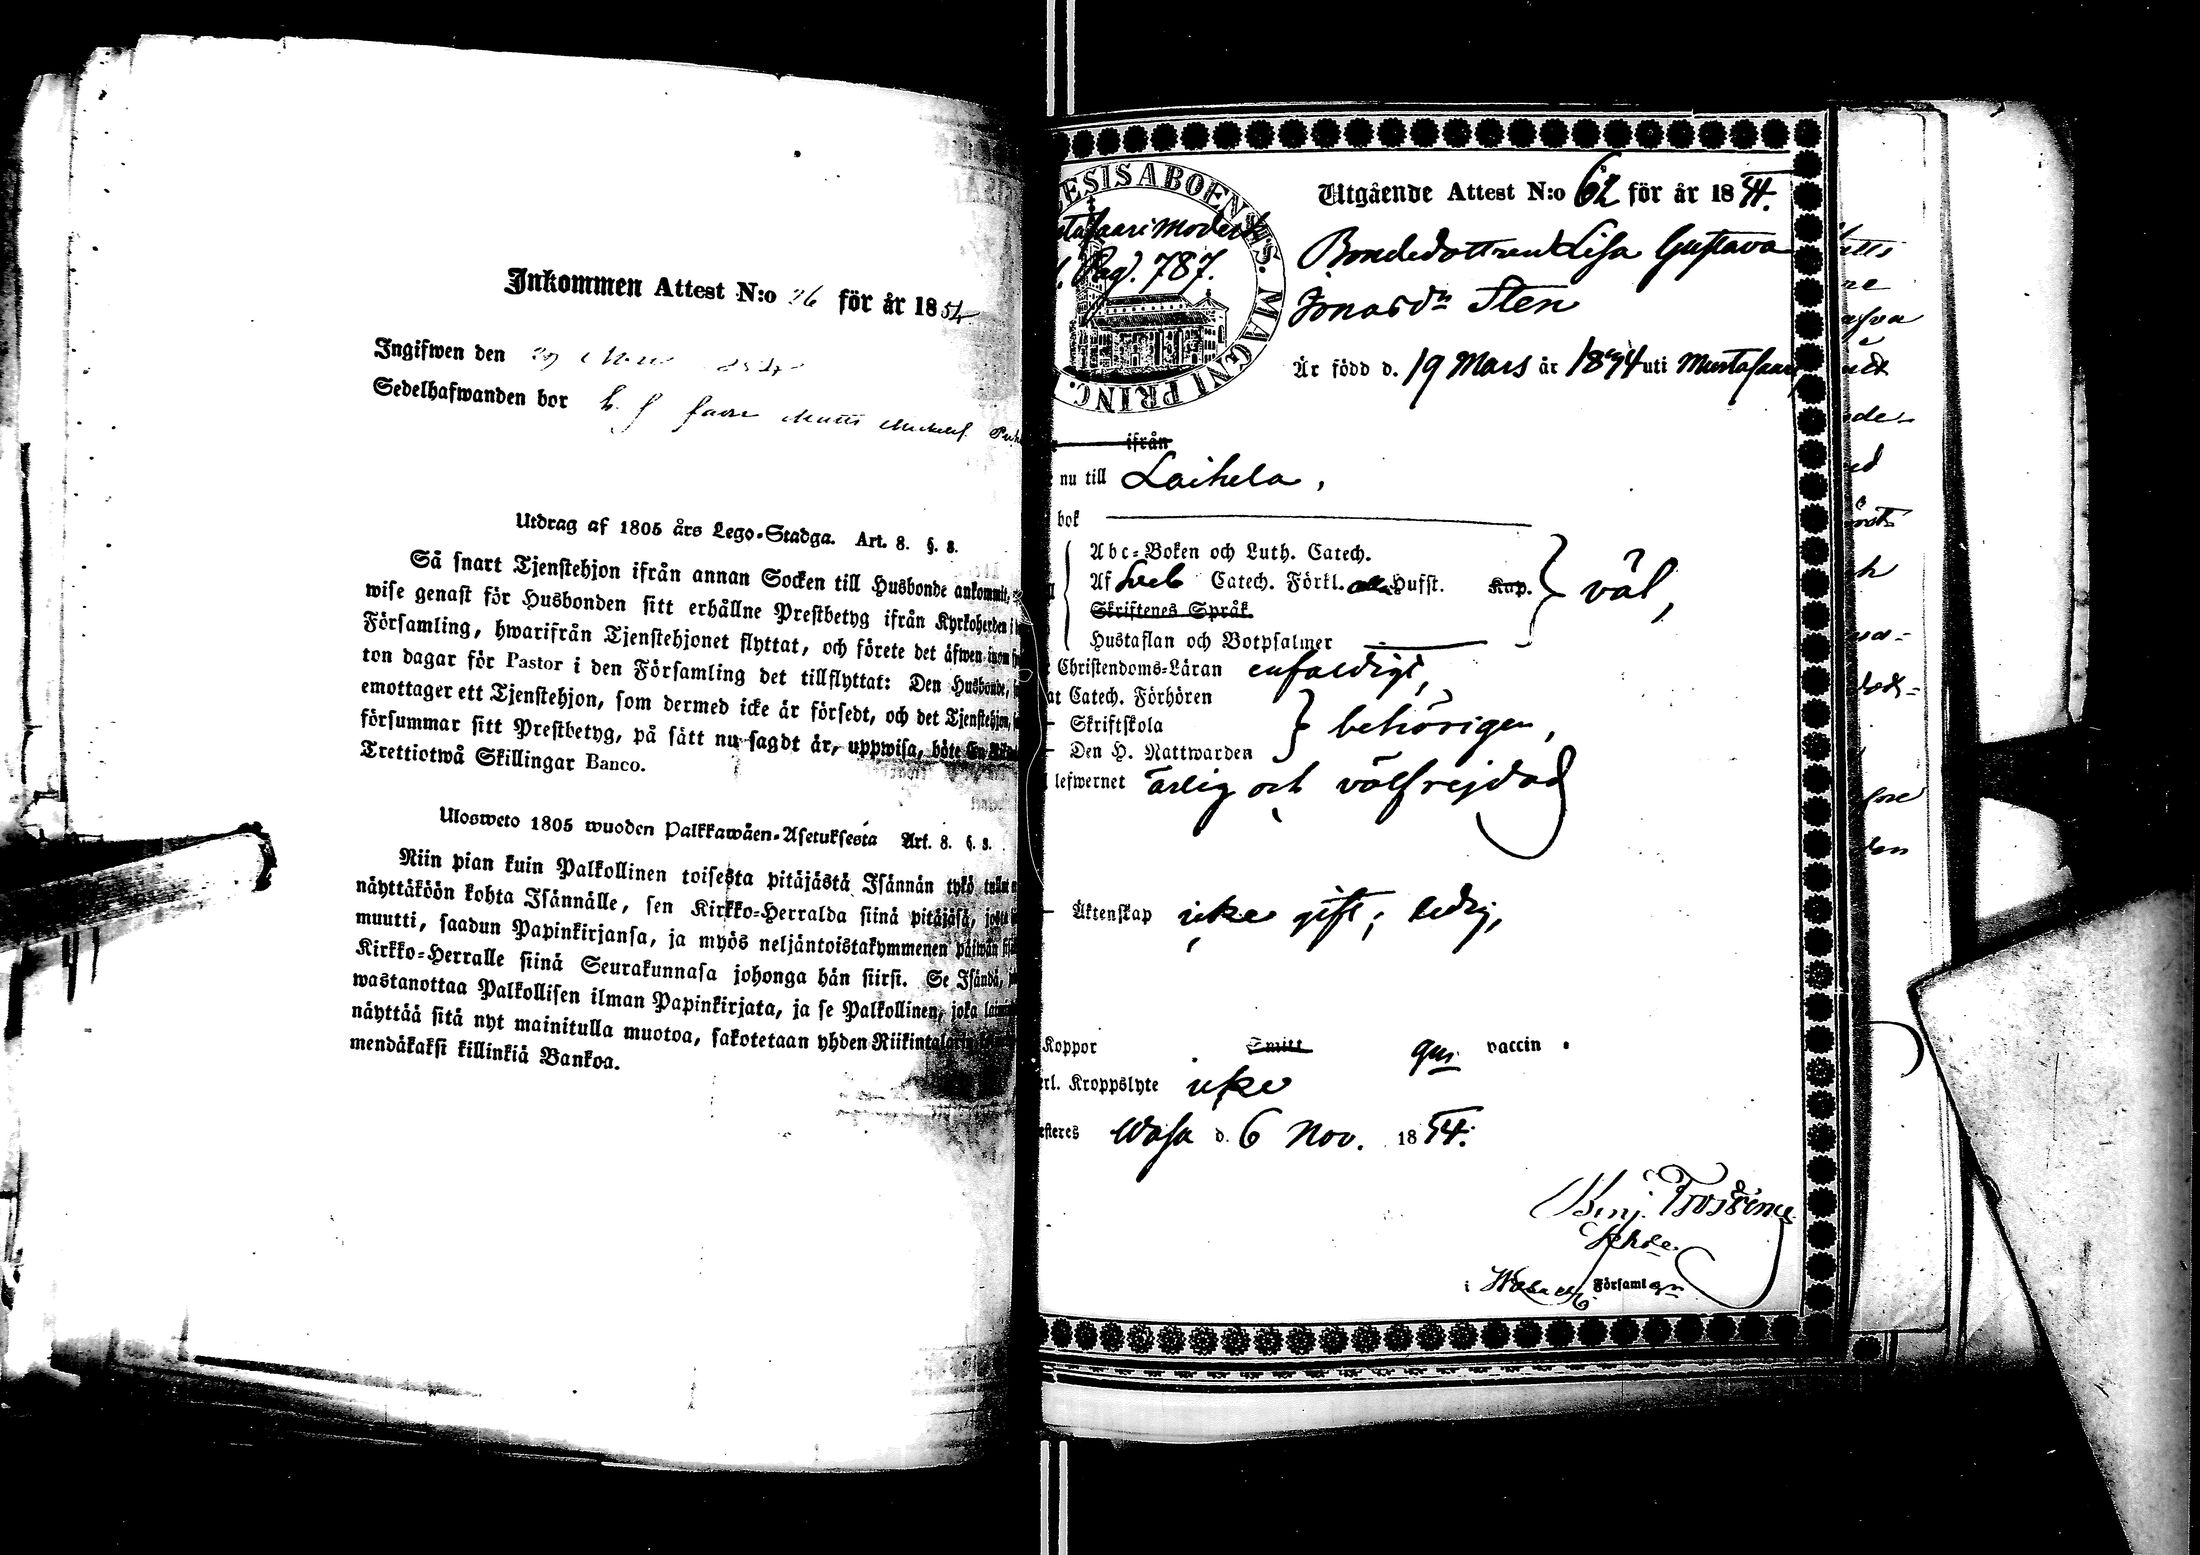 Inkommen Attest N:o 26 för år 1854.
Ingifwen den
Sedelhafwanden bor
Utdrag af 1805 års Lego-Stadga. Art. 8. §. 8.
Så snart Tjenstehjon ifrån annan Socken till Husbonde ankommit,
wise genast för Husbonden sitt erhållne Prestbetyg ifrån Kyrkoherden i
Församling, hwarifrån Tjenstehjonet flyttat, och förete det äfwen inom
ton dagar för Pastor i den Församling det tillflyttat: Den Husbonde,
emottager ett Tjenstehjon, som dermed icke är försedt, och det Tjenstehjon,
försummar sitt Prestbetyg, på sätt nu sagdt är, uppwisa, böte En
Trettiotwå Skillingar Banco.
Ulosweto 1805 wuoden Palkkawäen-Asetuksesta Art. 8. §. 8.
Niin pian kuin Palkollinen toisesta pitäjästä Isännän tykö
näyttäköön kohta Isännälle, sen Kirkko-Herralda siinä pitäjäsä,
muutti, saadun Papinkirjansa, ja myös neljäntoistakymmenen päiwän
Kirkko-Herralle siinä Seurakunnasa johonga hän siirsi. Se Isändä,
wastanottaa Palkollisen ilman Papinkirjata, ja se Palkollinen, joka
näyttää sitä nyt mainitulla muotoa, sakotetaan yhden Riikintalarin
mendäkaksi killinkiä Bankoa.
ESIS ABOENSIS. MAGNI PRINC.
Mustasaari moderk
Pag. 787.
Utgående Attest N:o 62 för år 1854.
Bondedottren Lisa Gustava
Jonasdr Sten
Är född d. 19 Mars år 1834 uti Mustasaari
ifrån
nu till Laihela,
bok
Abc-Boken och Luth. Catech.
Af Sveb Catech. Förkl. Hufst. Kap.
Skriftenes Språk.
Hustaflan och Botpsalmer
väl,
Christendoms-Läran enfaldigt,
at Catech. Förhören
Skriftskola
Den H. Nattwarden
behörigen,
lefwernet ärlig och välfrejdad
Äktenskap icke gift; ledig,
Koppor vaccin
erl. Kroppslyte icke
esteres Wasa d. 6 Nov. 1854.
Benj.
i Församl